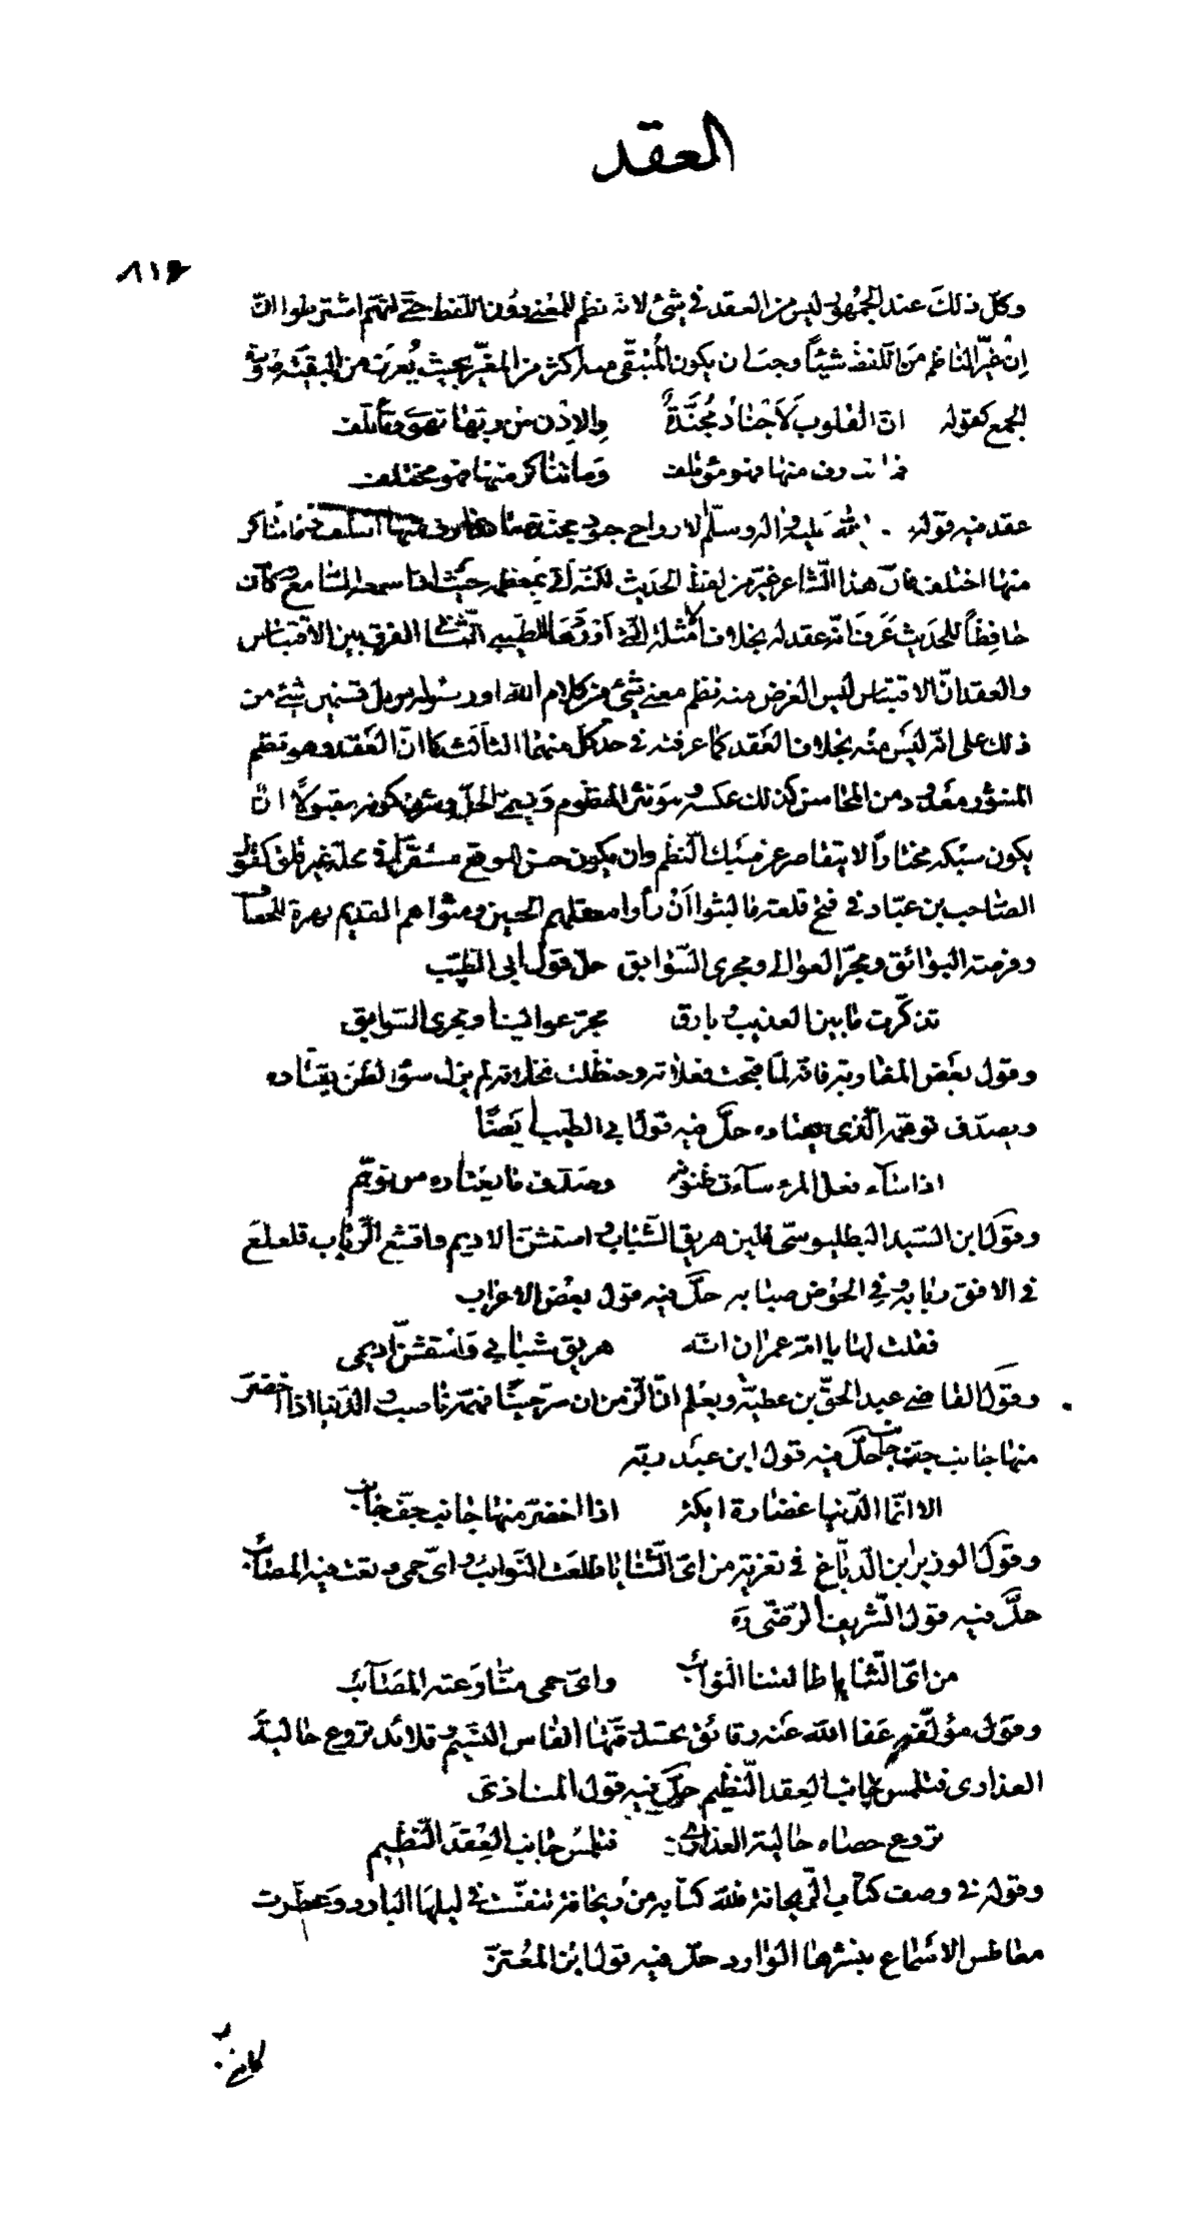 العقد
٨١٤
وكلّ ذلك عند الجمهور ليس من العقد في شئ لانه نظم للمعنى دون اللفظ حتى انهم اشترطوا انّ
ان غيّر الناظم من اللفظ شيئاً وجب ان يكون المُبَقّى منه اكثر من المغيّر بحيث يُعرف من البقيّة صورة
الجمع كقوله ان القلوب لَاَجْنادٌ مُجَنَّدةٌ والاِذن من ربّها تهوى وتأتلف
فما تعارف منها فهو مؤتلف وَما تناكر منها فهو مختلف
عقد فيه قوله صلى الله عليه واله وسلّم الارواح جنود مجنّدة فما تعارف منها ائتلف فما تناكر
منها اختلف فانّ هذا الشاعر غيّر من لفظ الحديث لكنّه اتى بمعظمه حيث اذا سمعه السامع وكان
حافِظاً للحديث عَرف انّه عقد له بخلاف الامثلة التي اَوْردَها الطّيبي الثّاني الفرق بين الاقتباس
والعقد انّ الاقتباس ليس الغرض منه نظم معنى شئ من كلام الله او رسوله بل تضمين شئ من
ذلك على انّه ليس منه بخلاف العَقد كما عرفته في حدّ كلّ منهما الثالث كما انّ العَقد وهو نظم
المنثور معدود من المحاسن كذلك عكسه وهو نثر المنظوم وَيسمى الحلّ وشرط كونه مقبولاً انّ
يكون سبكه مختاراً لا يتقاصر عن سبك النّظم وان يكون حسن الموقع مستقرّاً في محلّه غير قلق كقول
الصّاحب بن عبّاد في فتح قلعة فما لبثوا اَنْ رأوا معقلهم الحصين ومثواهم القديم نهزة للحصاد
وفرصة البوائق ومجرّ العوالي ومجرى السّوابق حلّ قول ابي الطّيّب
تذكّرت ما بين العذيب وبارق مجرّ عوالينا ومجرى السّوابق
وقول بعض المغاربة فانّه لمّا قبحت فعلاته وحنظلت نخلاته لم يزل سوء الظنّ يقتاده
ويصدّق توهّمه الّذي يعتاده حلّ فيه قول ابي الطّيّب اَيضًا
اذا ساء فعل المرء ساءت ظنونه وصدّق ما يعتاده من توهّم
وقول ابن السّيد البطليوسيّ فلئن هريق الشّباب واستشنّ الاديم واقشع الرّباب فلعلعَ
في الافق ربابه وفي الحوض صبابه حلّ فيه قول بعض الاعراب
فقلت لها يا امّ عمران انّه هريق شبابي وَاستشنّ اديمى
وقول القاضي عبد الحقّ بن عطيّة ويعلم انّ الزّمن ان سرّ حينًا فهمّه ناصب والدّنيا اذا اخضرّ
منها جانب جفّ جانب حلّ فيه قول ابن عبد ربّه
الا انّما الدّنيا غضارة ايكة اذا اخضرّ منها جانب جفّ جانب
وقول الوزير ابن الدّبّاغ في تعزية من ايّ الثّنايا طلعت النّوايب وايّ حمى رتعت فيه المصائب
حلّ فيه قول الشّريف الرّضيّ ره
من ايّ الثّنايا طالعتنا النوائب وايّ حمى منّا رعته المصائب
وقول مؤلّفه عَفا الله عَنه رقائق تحسد رقّتها انفاس النّسيم وقلائد تروع حالية
العذارى فتلمس جانب العِقد النّظيم حلّ فيه قول المنازى
تروع حصاه حالية العذارى فتلمس جانب العِقدَ النّظيم
وقوله في وصف كتاب الرّيحانة لله كتابه من رَيحانة تنفّست في ليلها البارد وَعطّرت
معاطس الاسماع بنشرها الوارد حلّ فيه قول ابن المُعتزّ